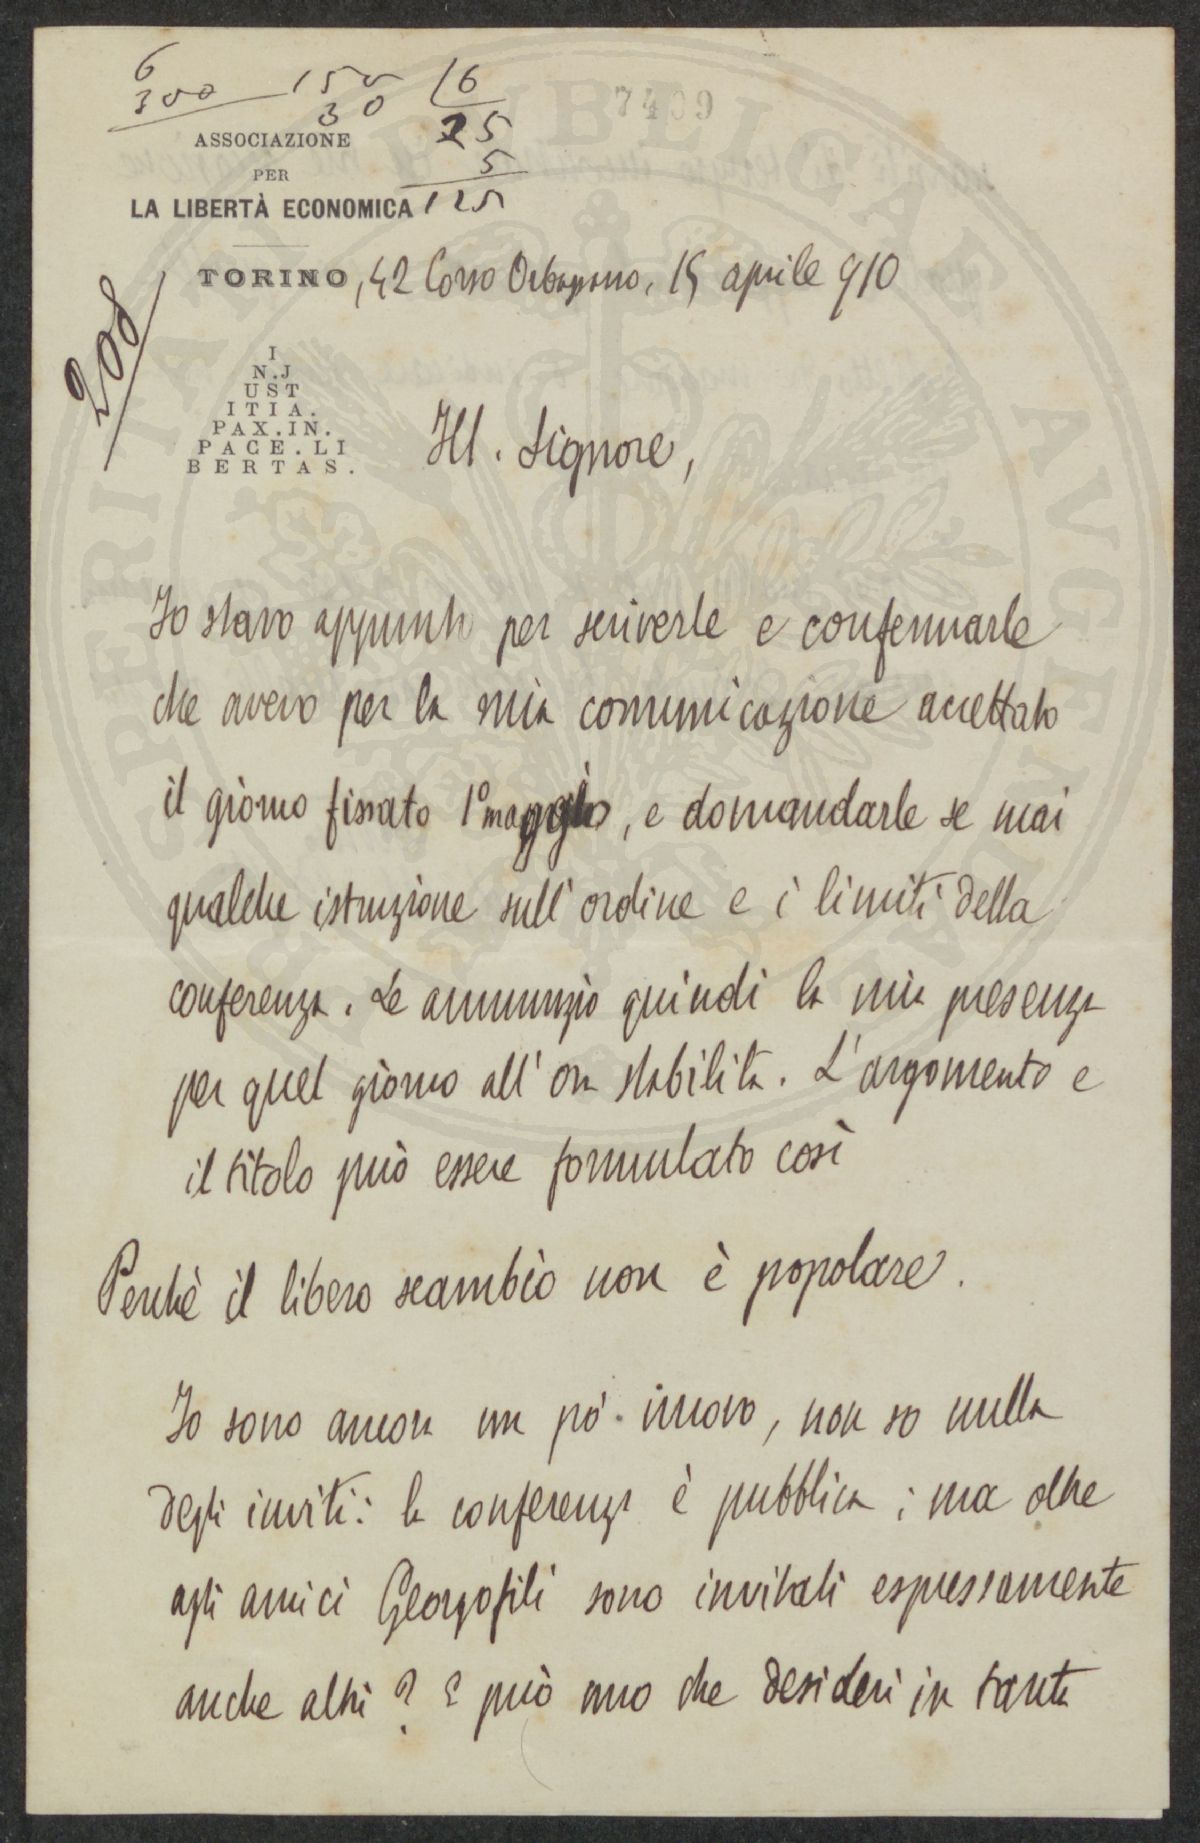 6
300 150 16
30 25
7409
ASSOCIAZIONE
5
PER
LA LIBERTÀ ECONOMICA 125
TORINO, 42 Corso Orbassano, 15 aprile 910
208
I
N.J
UST
ITIA.
PAX.IN.
PACE.LI
BERTAS.
Ill. Signore,
Io stavo appunto per scriverle e confermarle
che avevo per la mia comunicazione accettato
il giorno fissato 1º maggio, e domandarle se mai
qualche istruzione sull'ordine e i limiti della
conferenza. Le annunzio quindi la mia presenza
per quel giorno all'ora stabilita. L'argomento e
il titolo può essere formulato così
Perchè il libero scambio non è popolare.
Io sono ancora un pò nuovo, non so nulla
degli inviti: la conferenza è pubblica; ma oltre
agli amici Georgofili sono invitati espressamente
anche altri? E può uno che desideri in tanta